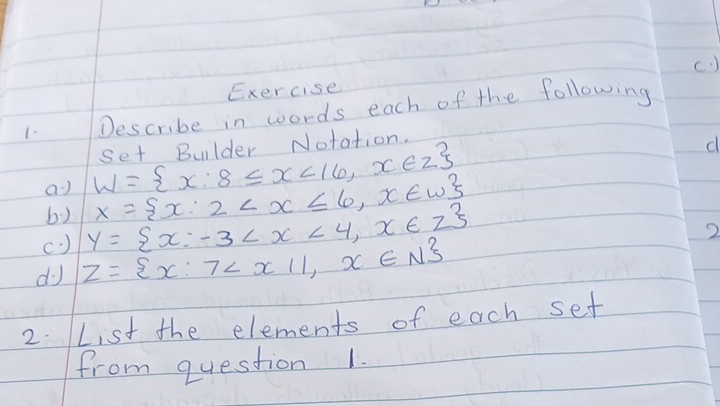 Exercise
1. Describe in words each of the following
Set Builder Notation.
a.) W = { x : 8 ≤ x < 16, x ∈ Z}
b.) X = {x : 2 < x ≤ 6, x ∈ W}
c.) Y = {x : -3 < x < 4, x ∈ Z}
d.) Z = {x : 7 < x 11, x ∈ N}
2. List the elements of each set
from question 1.
c.)
d
2